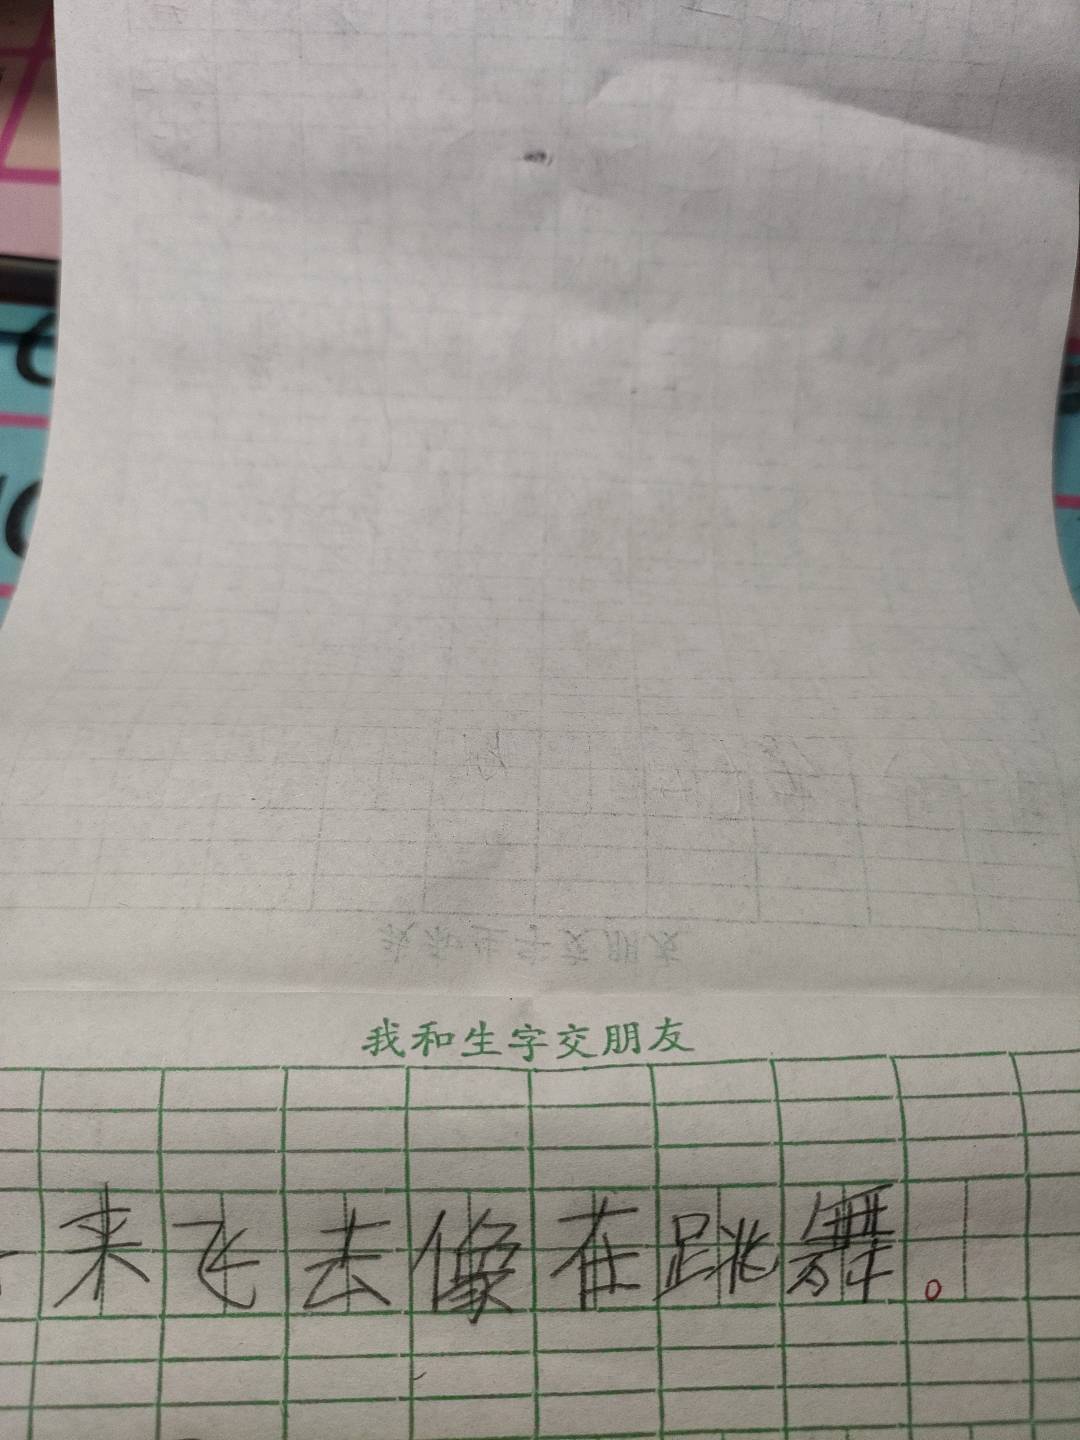 我和生字交朋友
来飞去像在跳舞。